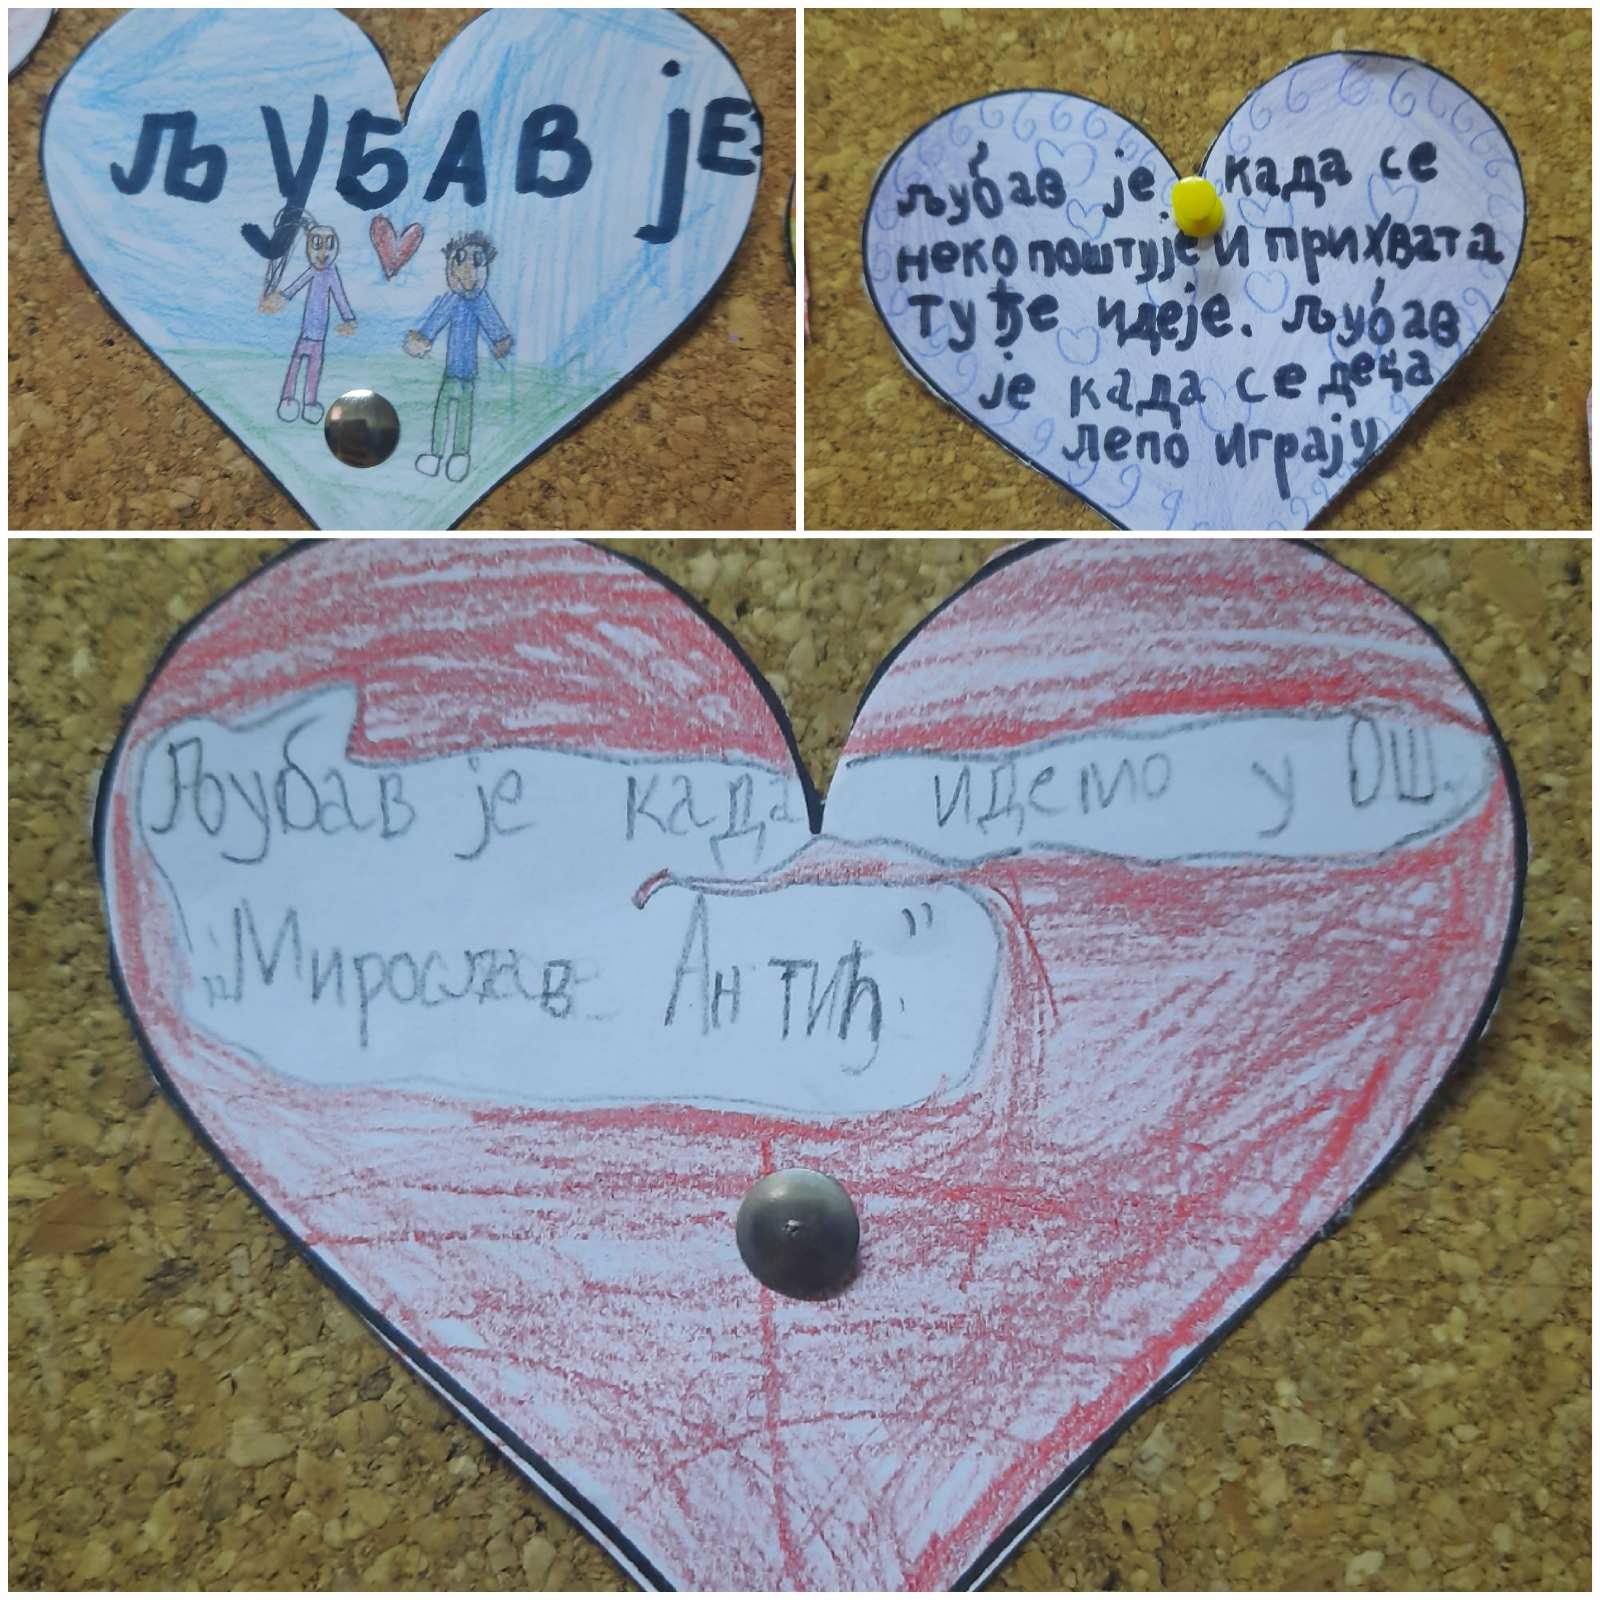 ЉУБАВ ЈЕ
љубав је када се
неко поштује и прихвата
туђе идеје. љубав
је када се деца
лепо играју
Љубав је када идемо у ОШ.
„Мирослав Антић.”